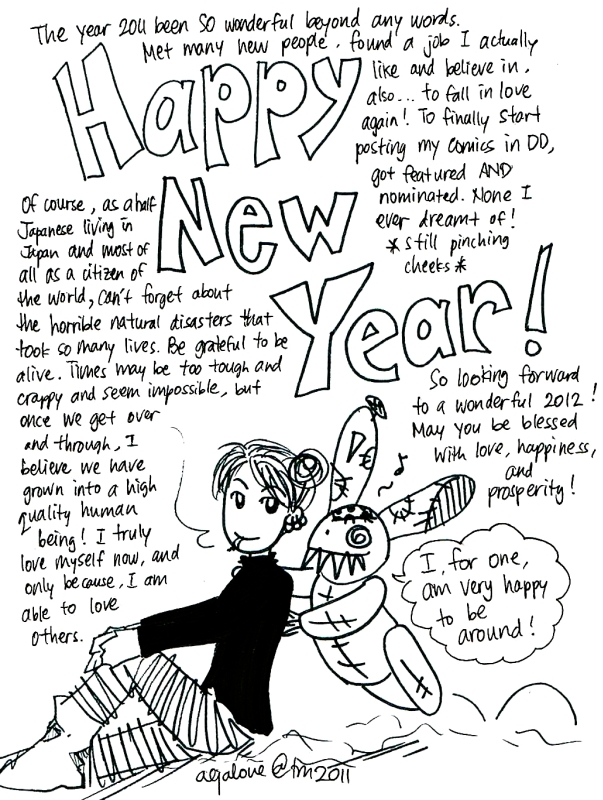 The year 2011 been SO wonderful beyond any words.
Met many new people, found a job I actually
like and believe in,
also... to fall in love
again! To finally start
posting my comics in DD,
got featured AND
nominated. None I
ever dreamt of!
*still pinching
cheeks*
Happy
New
Year!
Of course, as a half
Japanese living in
Japan and most of
all as a citizen of
the world, can't forget about
the horrible natural disasters that
took so many lives. Be grateful to be
alive. Times may be too tough and
crappy and seem impossible, but
once we get over
and through, I
believe we have
grown into a high
quality human
being! I truly
love myself now, and
only because, I am
able to love
others.
So looking forward
to a wonderful 2012!
May you be blessed
with love, happiness,
and
prosperity!
I, for one,
am very happy
to be
around!
2011